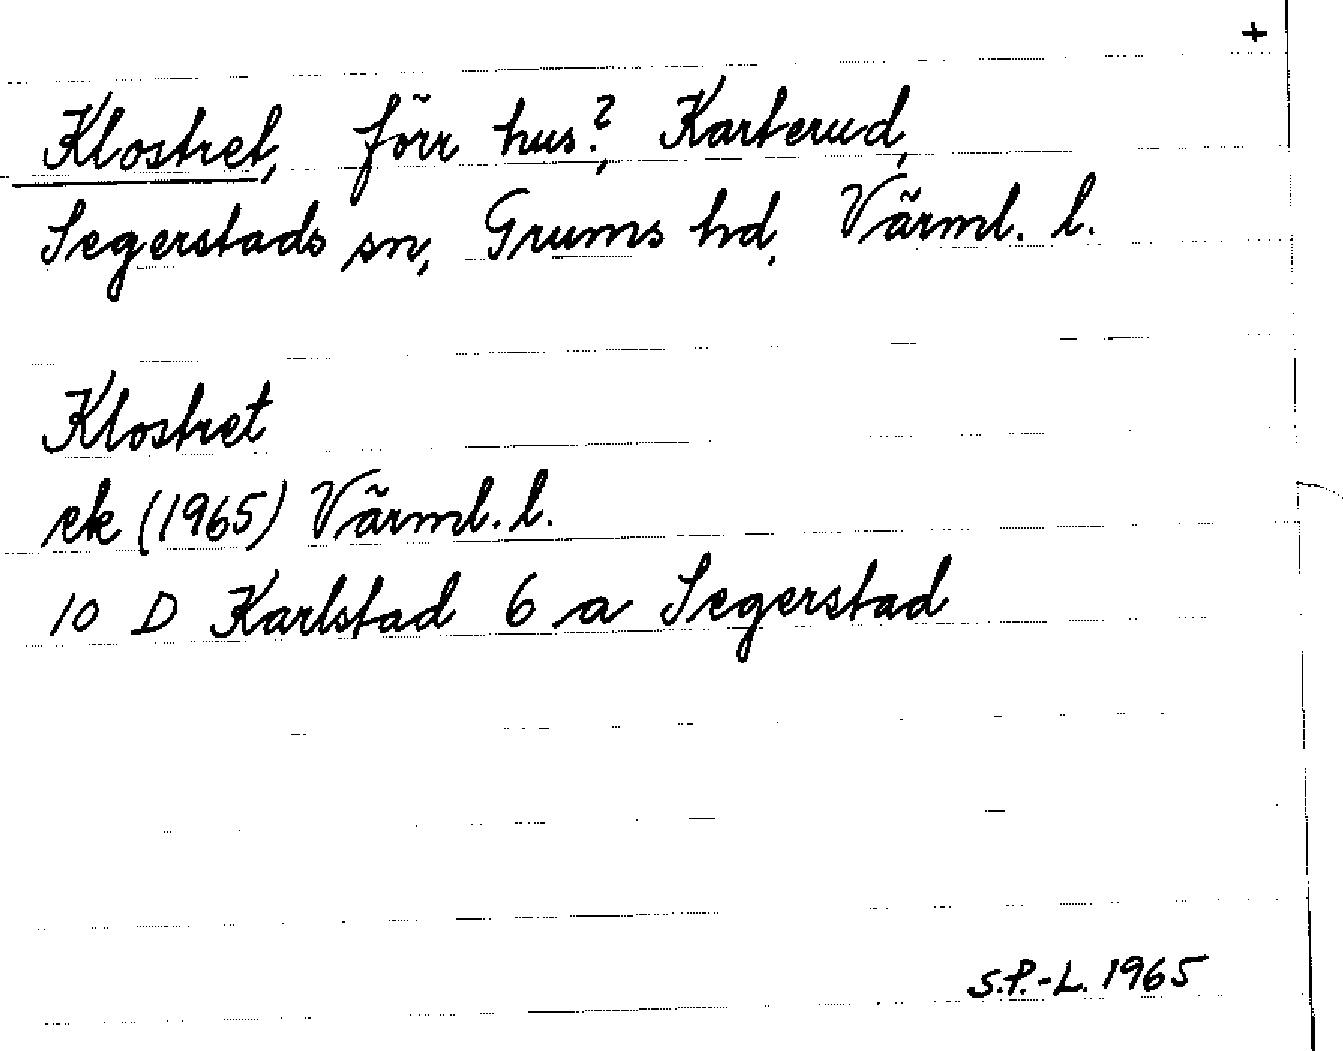 +
Klostret, förr hus?, Karterud,
Segerstads sn, Grums hd, Värml. l.
Klostret
ek (1965) Värml. l.
10 D Karlstad 6 a Segerstad
S.P.-L. 1965